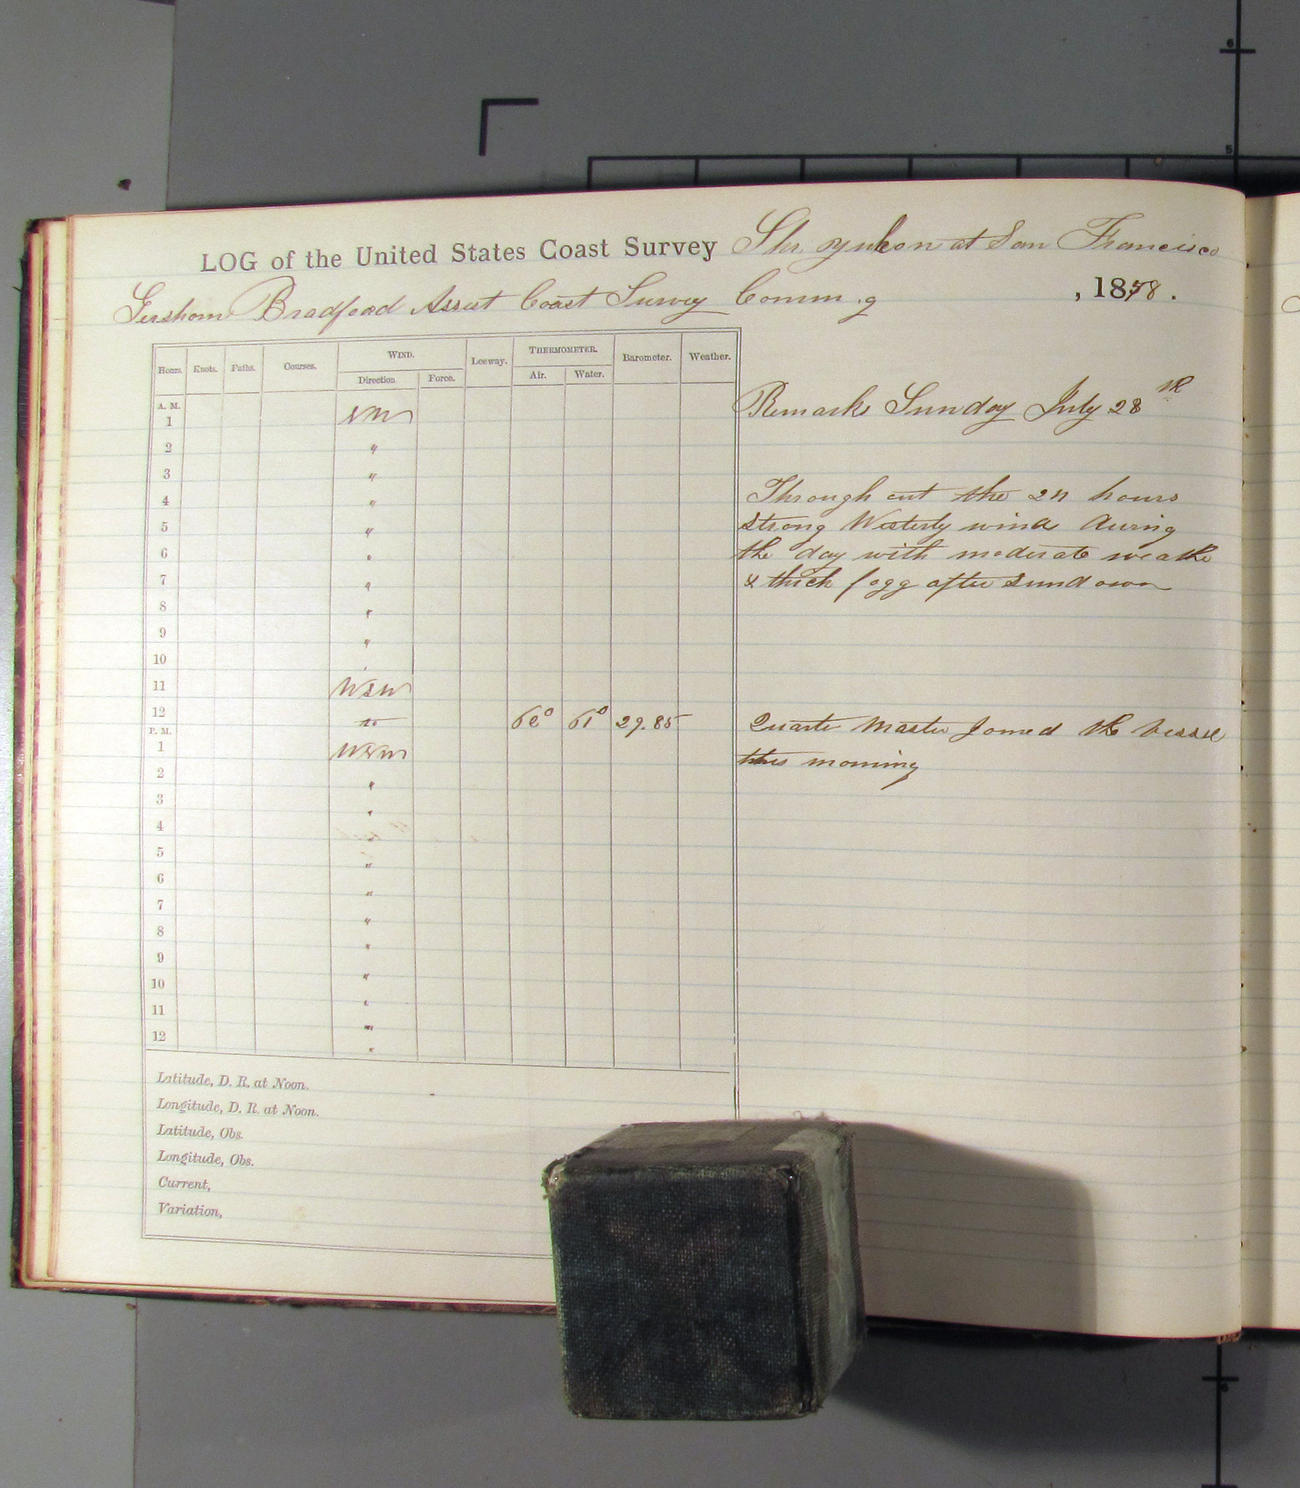 LOG of the United States Coast Survey Schr. Yukon at San Francisco
Gershom Bradford Assist Coast Survey Comm.g , 1878.
Hours. Knots. Faths. Courses. WIND. Leeway. THERMOMETER. Barometer. Weather.
Direction Force. Air. Water.
Remarks Sunday July 28th
A. M.
1
2 "
3 "
4 " Through out the 24 hours
5 " Strong Westerly wind during
6 " the day with moderate weathe
7 " & thick fogg after Sundown
8 "
9 "
10 "
11 WSW
12 62° 61° 29.85 Quarte Master Joined the Vessel
P. M.
1 WNW this morning
2 "
3 "
4 "
5 "
6 "
7 "
8 "
9 "
10 "
11 "
12 "
Latitude, D. R. at Noon.
Longitude, D. R. at Noon.
Latitude, Obs.
Longitude, Obs.
Current,
Variation,